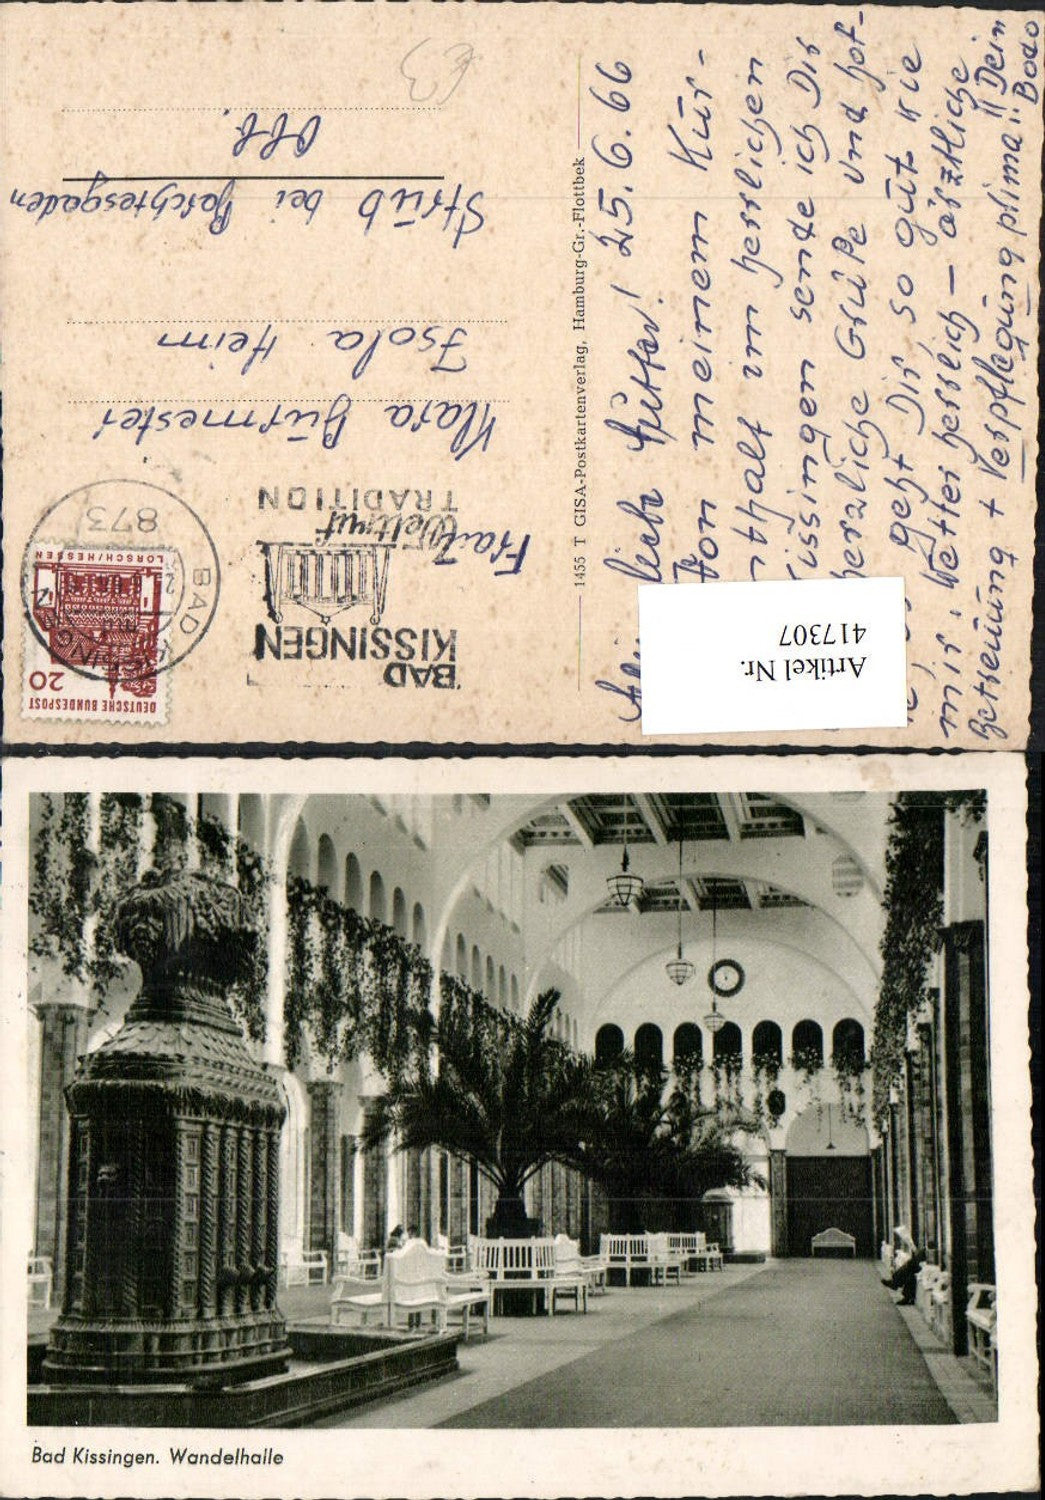 DEUTSCHE BUNDESPOST
20
LORSCH/HESSEN
BAD KISSINGEN
873
BAD
KISSINGEN
Weltruf
TRADITION
Frau
Klara Burmester
Isola Heim
Strub bei Berchtesgaden
Obb.
€3
1455 T GISA-Postkartenverlag, Hamburg-Gr.-Flottbek
liebe Mutter! 25.6.66
Von meinem Kur-
im herrlichen
Kissingen sende ich Dir
herzliche Grüße und hof-
fe, geht Dir so gut wie
mir. Wetter herrlich – ärztliche
Betreuung + Verpflegung prima!! Dein
Bodo
Artikel Nr.
417307
Bad Kissingen. Wandelhalle